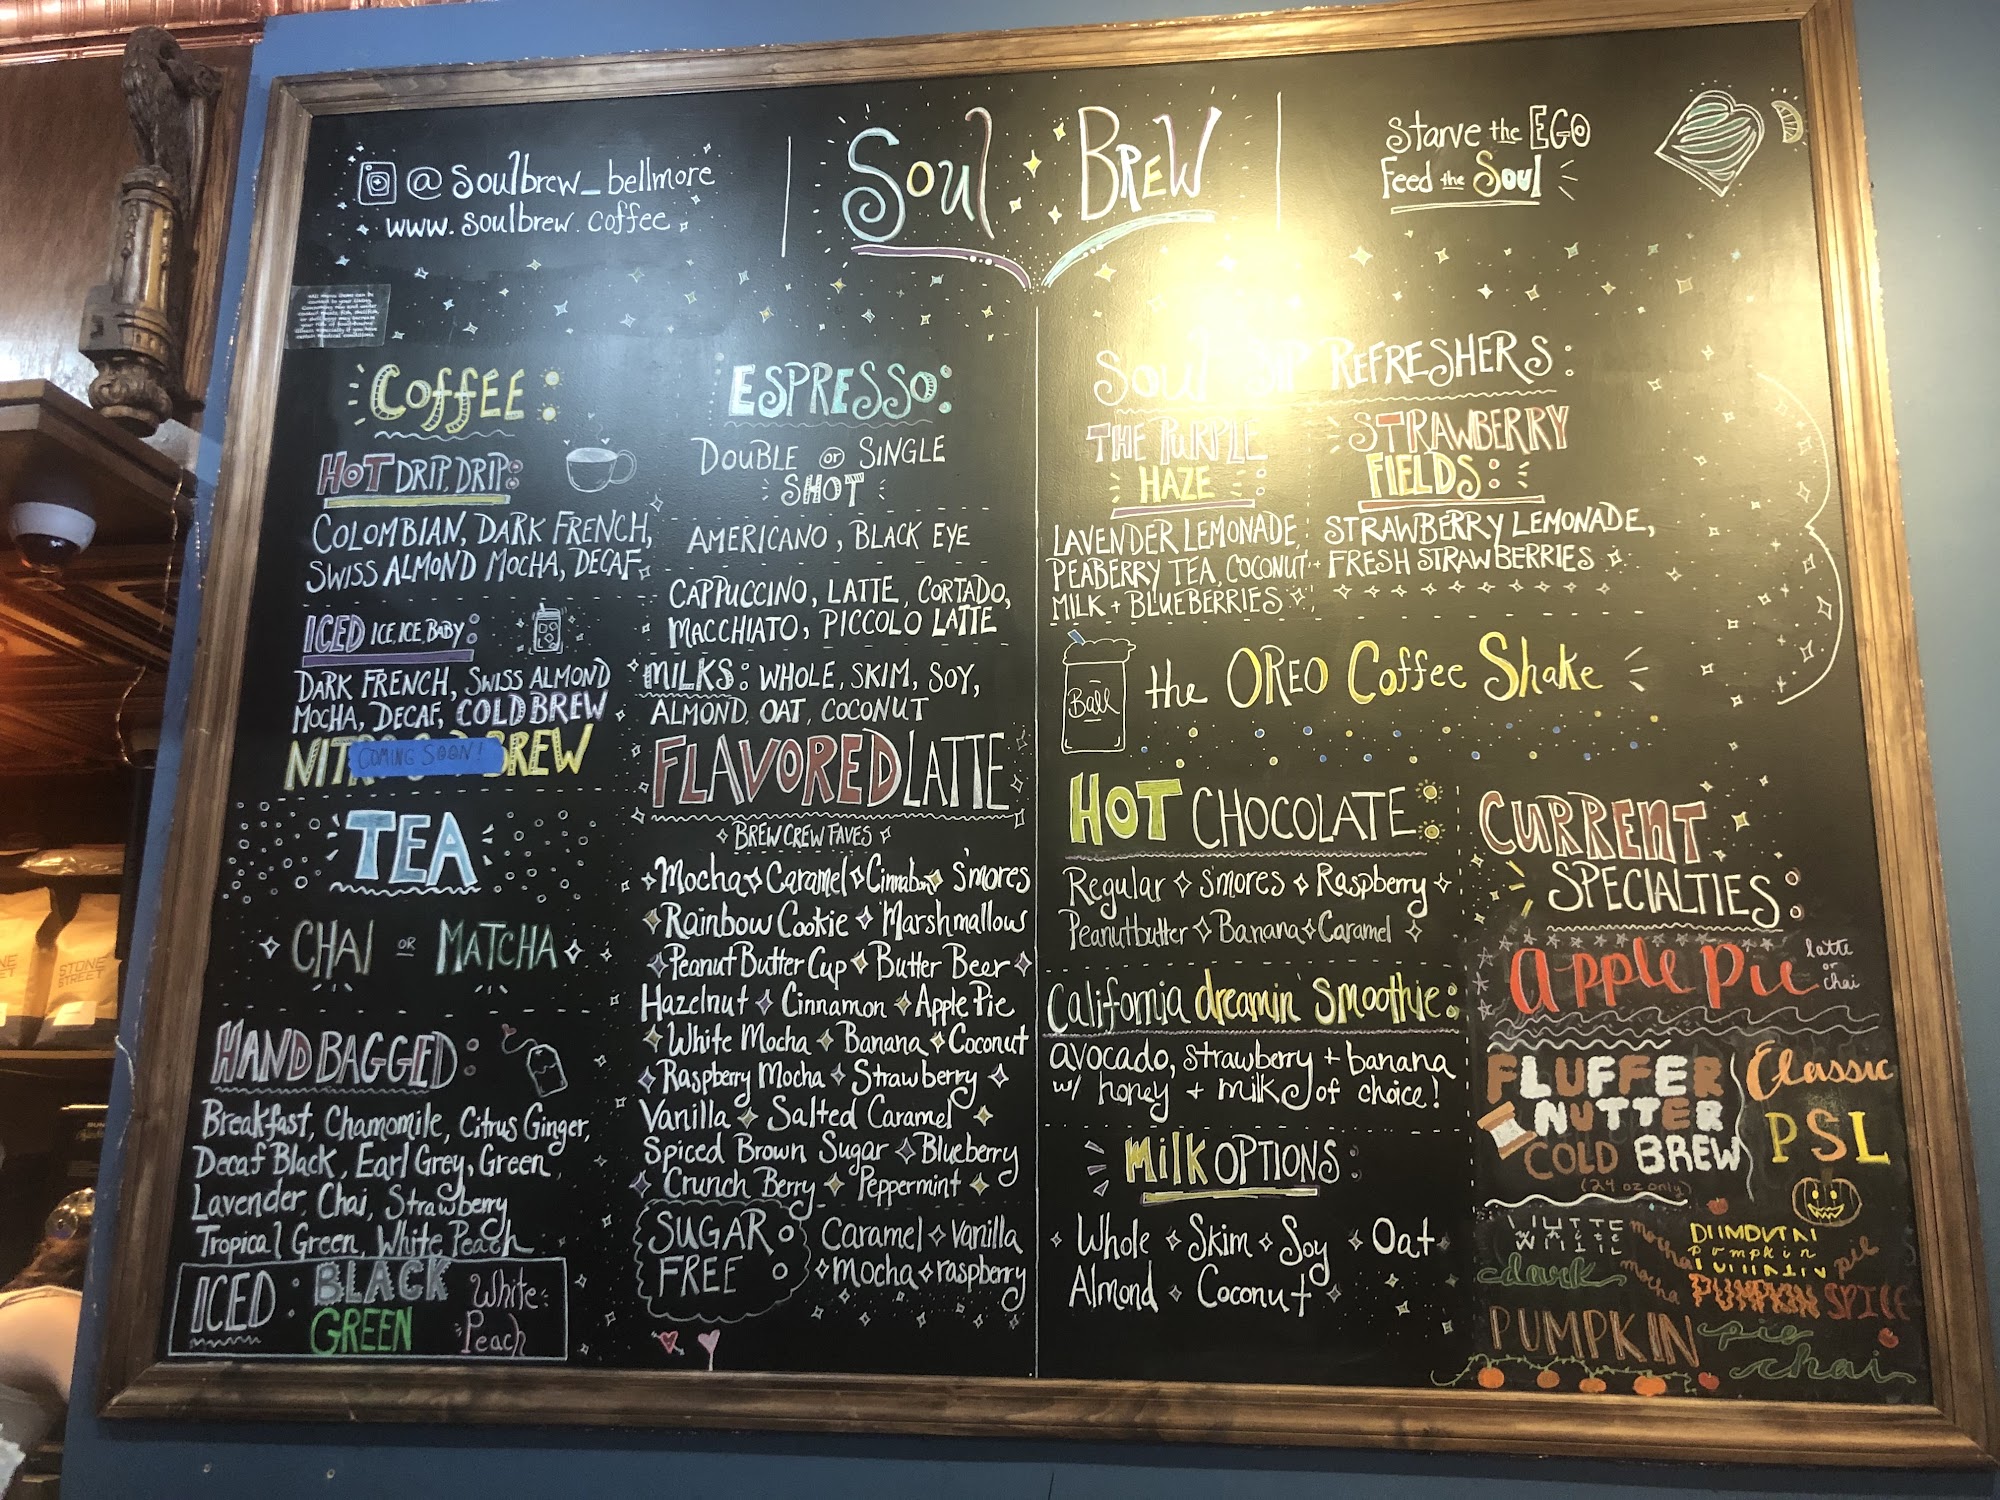 @soulbrew_bellmore
www.soulbrew.coffee
Soul Brew
Starve the EGO
Feed the Soul
CoffEE
HOT DRIP, DRIP:
COLOMBIAN, DARK FRENCH,
SWISS ALMOND MOCHA, DECAF
ICED ICE, ICE, BABY:
DARK FRENCH, SWISS ALMOND
MOCHA, DECAF, COLD BREW
BREW
COMING SOON!
TEA
CHAI OR MATCHA
HAND BAGGED:
Breakfast, Chamomile, Citrus Ginger,
Decaf Black, Earl Grey, Green
Lavender, Chai, Strawberry
Tropical Green, White Peach
ICED: BLACK
GREEN
White
Peach
ESPRESSO:
DOUBLE or SINGLE
SHOT
AMERICANO, BLACK EYE
CAPPUCCINO, LATTE, CORTADO,
MACCHIATO, PICCOLO LATTE
MILKS: WHOLE, SKIM, SOY,
ALMOND, OAT, COCONUT
FLAVORED LATTE
BREW CREW FAVES
Mocha Caramel Cinnabun S'mores
Rainbow Cookie Marshmallow
Peanut Butter Cup Butter Beer
Hazelnut Cinnamon Apple Pie
White Mocha Banana Coconut
Raspberry Mocha Strawberry
Vanilla Salted Caramel
Spiced Brown Sugar Blueberry
Crunch Berry Peppermint
SUGAR
FREE
Caramel Vanilla
mocha raspberry
Soul REFRESHERS:
THE PURPLE
HAZE:
LAVENDER LEMONADE,
PEABERRY TEA, COCONUT
MILK + BLUEBERRIES
STRAWBERRY
FIELDS:
STRAWBERRY LEMONADE,
FRESH STRAWBERRIES
Ball
the OREO Coffee Shake
HOT CHOCOLATE:
Regular S'mores Raspberry
Peanutbutter Banana Caramel
California dreamin' Smoothie:
avocado, strawberry + banana
w/ honey + milk of choice!
Milk OPTIONS:
Whole Skim Soy Oat
Almond Coconut
CURRENT
SPECIALTIES:
Apple Pie
latte
or
chai
FLUFFER
NUTTER
COLD BREW
(24 oz only)
Classic
PSL
dark
mocha
mocha
pumpkin
pie
PUMPKIN SPICE
PUMPKIN pie
chai
STONE
STREET